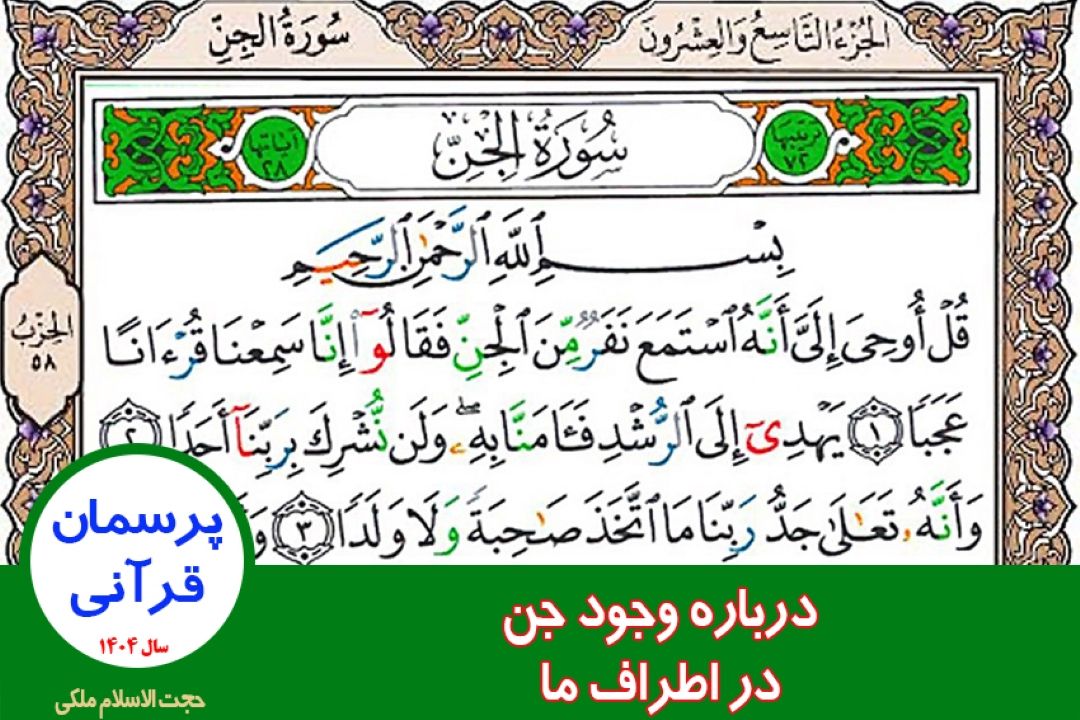 الجُزْءُ التَّاسِعُ وَالعِشْرُونَ
سُورَةُ الجِنِّ
ترتيبها ٧٢
سُورَةُ الجِنِّ
آياتها ٢٨
بِسْمِ ٱللَّهِ ٱلرَّحْمَٰنِ ٱلرَّحِيمِ
قُلْ أُوحِىَ إِلَىَّ أَنَّهُ ٱسْتَمَعَ نَفَرٌ مِّنَ ٱلْجِنِّ فَقَالُوٓا۟ إِنَّا سَمِعْنَا قُرْءَانًا
عَجَبًا ١ يَهْدِىٓ إِلَى ٱلرُّشْدِ فَـَٔامَنَّا بِهِۦ ۖ وَلَن نُّشْرِكَ بِرَبِّنَآ أَحَدًا ٢
وَأَنَّهُۥ تَعَٰلَىٰ جَدُّ رَبِّنَا مَا ٱتَّخَذَ صَٰحِبَةً وَلَا وَلَدًا ٣
الحِزْبُ
٥٨
پرسمان
قرآنی
سال ۱۴۰۴
حجت الاسلام ملکی
درباره وجود جن
در اطراف ما